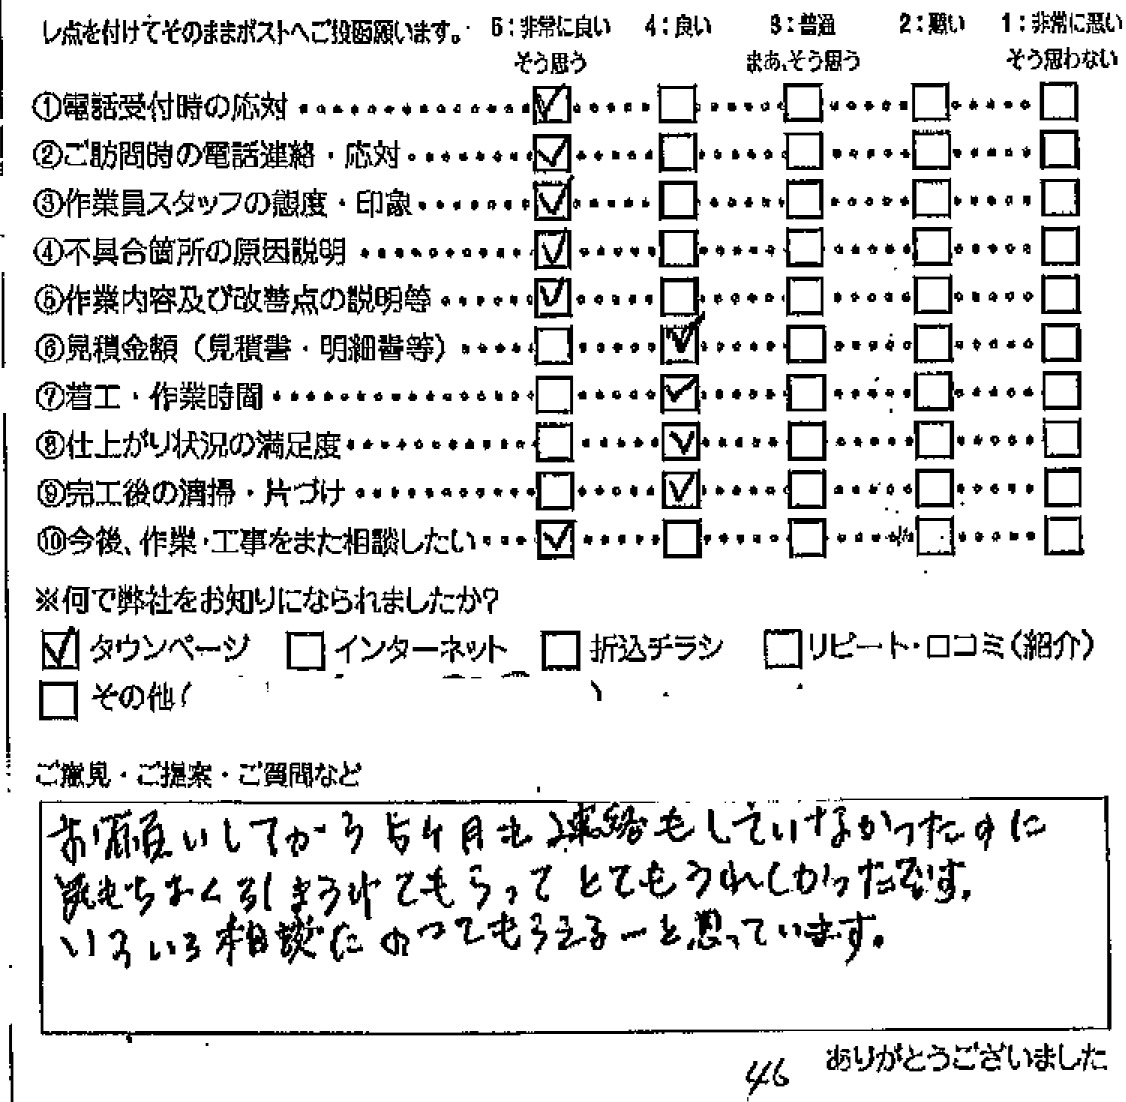 レ点を付けてそのままポストへご投函願います。 5：非常に良い 4：良い 3：普通 2：悪い 1：非常に悪い
そう思う まあ、そう思う そう思わない
①電話受付時の応対
②ご訪問時の電話連絡・応対
③作業員スタッフの態度・印象
④不具合箇所の原因説明
⑤作業内容及び改善点の説明等
⑥見積金額（見積書・明細書等）
⑦着工・作業時間
⑧仕上がり状況の満足度
⑨完工後の清掃・片づけ
⑩今後、作業・工事をまた相談したい
※何で弊社をお知りになられましたか？
タウンページ インターネット 折込チラシ リピート・口コミ（紹介）
その他（ ）
ご意見・ご提案・ご質問など
お願いしてから5ヶ月も連絡もしていなかったのに
気もちよく引きうけてもらってとてもうれしかったです。
いろいろ相談にのってもらえるーと思っています。
46 ありがとうございました